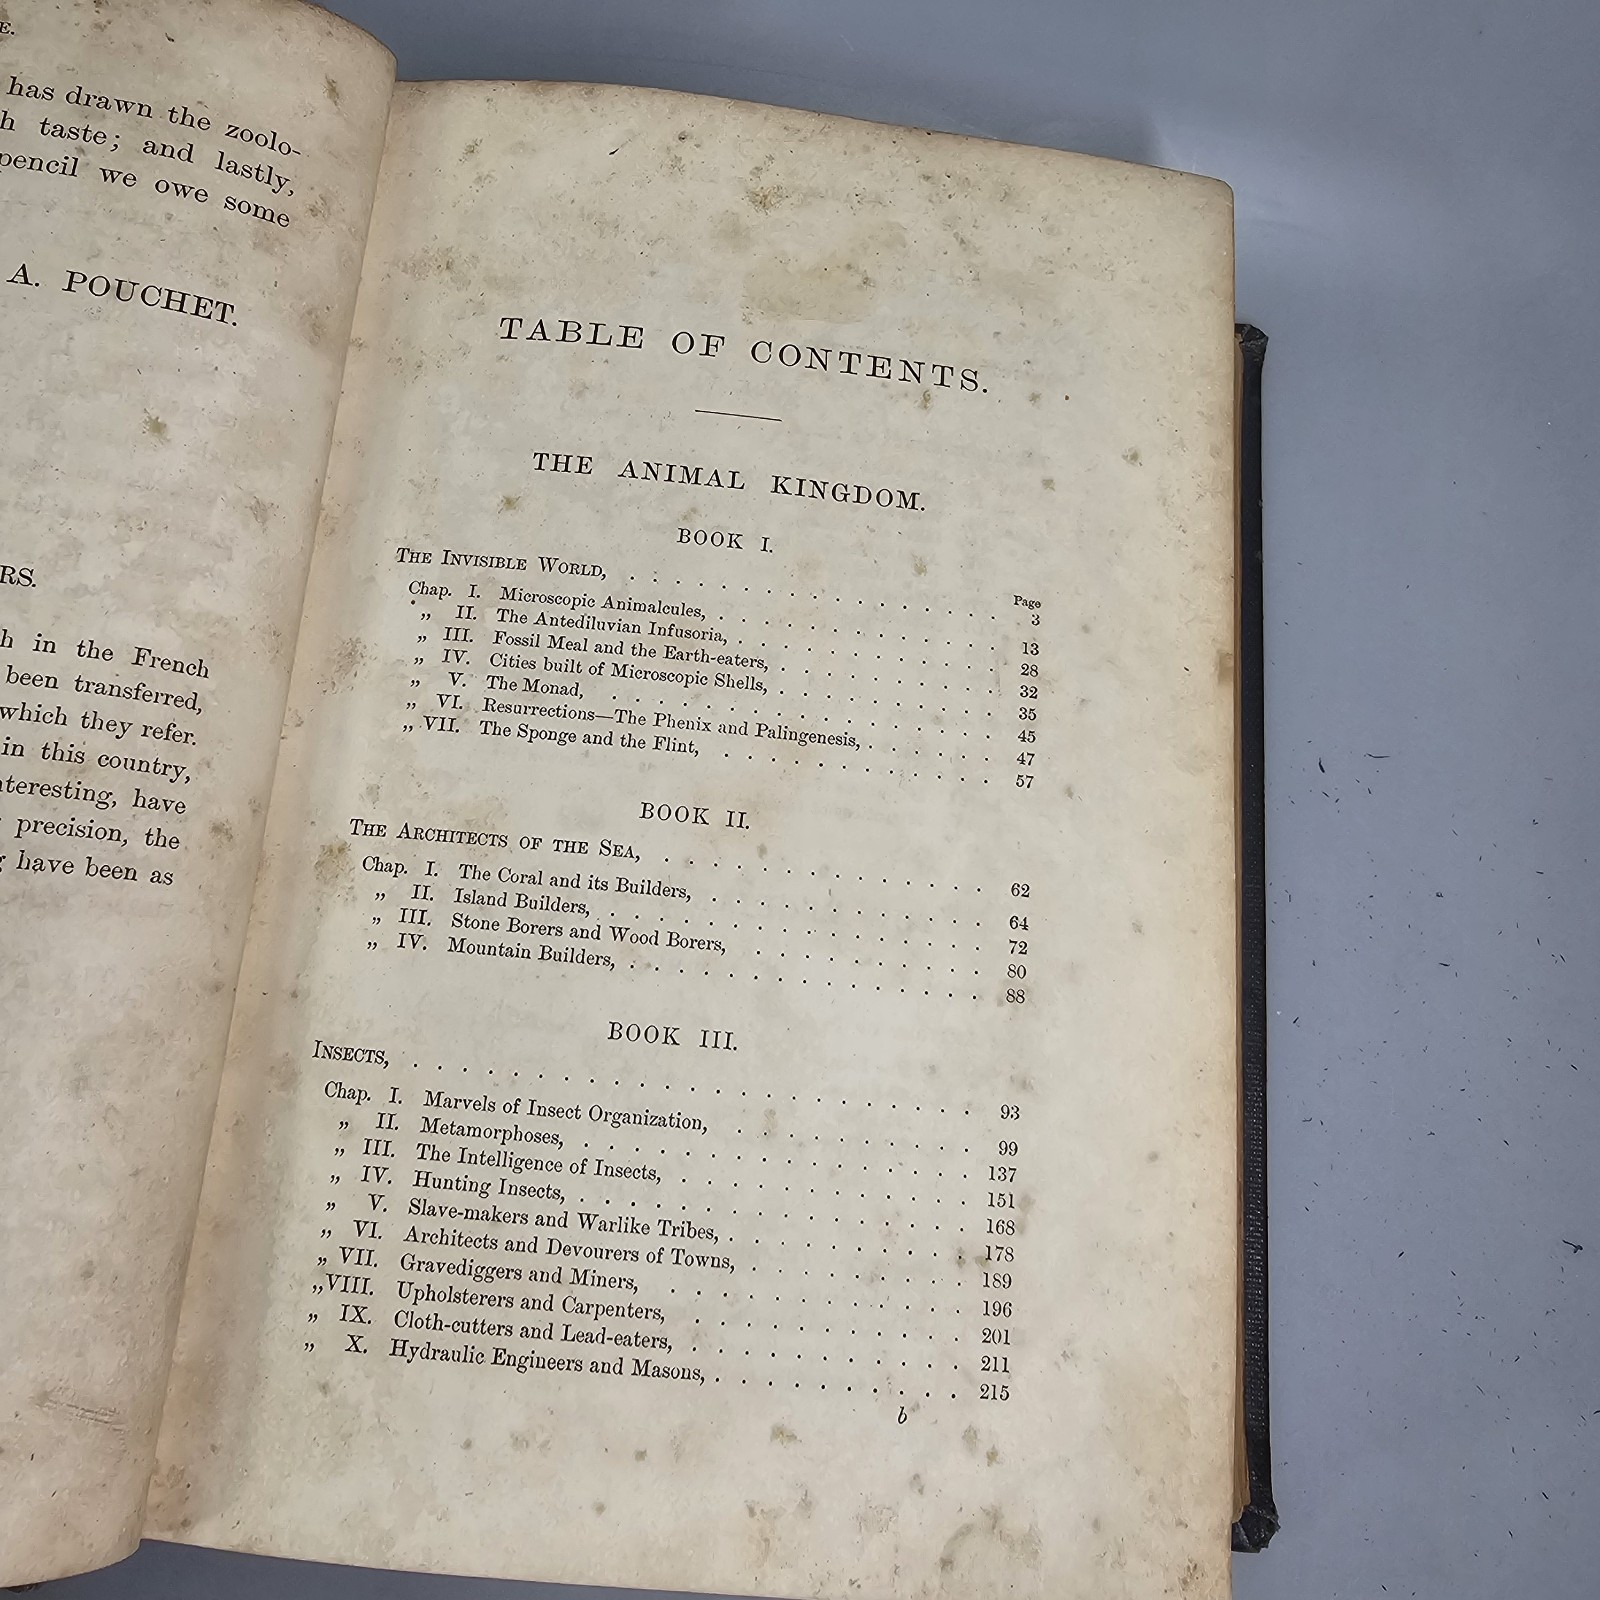 E.
has drawn the zoolo-
h taste; and lastly,
pencil we owe some
A. POUCHET.
RS.
h in the French
been transferred,
which they refer.
in this country,
nteresting, have
precision, the
g have been as
TABLE OF CONTENTS.
THE ANIMAL KINGDOM.
BOOK I.
Page
The Invisible World, . . . . . . . . . . . . 3
Chap. I. Microscopic Animalcules, . . . . . . . . . . . . 13
„ II. The Antediluvian Infusoria, . . . . . . . . . . . . 28
„ III. Fossil Meal and the Earth-eaters, . . . . . . . . . . 32
„ IV. Cities built of Microscopic Shells, . . . . . . . . . . 35
„ V. The Monad, . . . . . . . . . . . . 45
„ VI. Resurrections—The Phenix and Palingenesis, . . . . . . 47
„ VII. The Sponge and the Flint, . . . . . . . . . . . . 57
BOOK II.
The Architects of the Sea, . . . . . . . . . . 62
Chap. I. The Coral and its Builders, . . . . . . . . . . . . 64
„ II. Island Builders, . . . . . . . . . . . . 72
„ III. Stone Borers and Wood Borers, . . . . . . . . . . 80
„ IV. Mountain Builders, . . . . . . . . . . . . 88
BOOK III.
Insects, . . . . . . . . . . . . 93
Chap. I. Marvels of Insect Organization, . . . . . . . . . . 99
„ II. Metamorphoses, . . . . . . . . . . . . 137
„ III. The Intelligence of Insects, . . . . . . . . . . . . 151
„ IV. Hunting Insects, . . . . . . . . . . . . 168
„ V. Slave-makers and Warlike Tribes, . . . . . . . . . . 178
„ VI. Architects and Devourers of Towns, . . . . . . . . . 189
„ VII. Gravediggers and Miners, . . . . . . . . . . . . 196
„ VIII. Upholsterers and Carpenters, . . . . . . . . . . . 201
„ IX. Cloth-cutters and Lead-eaters, . . . . . . . . . . . 211
„ X. Hydraulic Engineers and Masons, . . . . . . . . . . 215
b